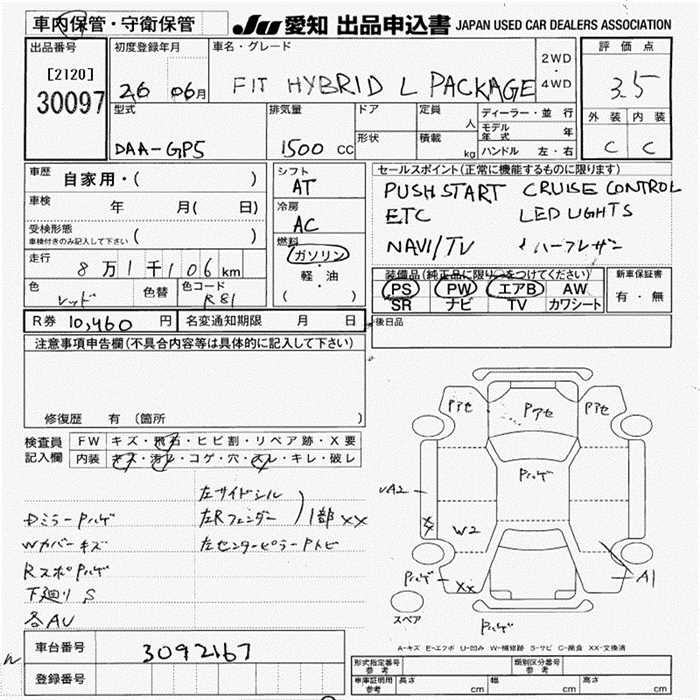 車内保管・守衛保管
JU 愛知 出品申込書 JAPAN USED CAR DEALERS ASSOCIATION
出品番号
[2120]
30097
初度登録年月
26 06月
車名・グレード
FIT HYBRID L PACKAGE
2WD
・
4WD
評価点
3.5
外装 内装
C C
型式
DAA-GP5
排気量
1500 CC
ドア
形状
定員
人
積載
kg
ディーラー・並行
モデル年式 年
ハンドル 左・右
車歴 自家用・( )
車検 年 月( 日)
受検形態
車検付きのみ記入して下さい ( )
走行
8万1千106km
色 色替 色コード
レッド R81
R券 10,460 円 名変通知期限 月 日
シフト
AT
冷房
AC
燃料
ガソリン
・
軽・油
( )
セールスポイント(正常に機能するものに限ります)
PUSH START CRUISE CONTROL
ETC LED LIGHTS
NAVI/TV ハーフレザー
装備品(純正品に限り○をつけてください)
PS PW エアB AW
SR ナビ TV カワシート
新車保証書
有・無
後日品
注意事項申告欄(不具合内容等は具体的に記入して下さい)
修復歴 有(箇所 )
検査員記入欄
FW キズ・飛石・ヒビ割・リペア跡・X要
内装 キズ・汚レ・コゲ・穴・スレ・キレ・破レ
左サイドシル
DミラーPハゲ 左Rフェンダー 1部XX
Wカバーキズ 左センターピラーPトビ
RスポPハゲ
下廻りS
各AU
車台番号 3092167
登録番号
Pアセ Pアセ Pアセ
Pハゲ
A2
XX
W2
Pハゲ
XX
A1
スペア
Pハゲ
A-キズ E-エクボ U-凹み W-補修跡 S-サビ C-腐食 XX-交換済
形式指定番号 参考
類別区分番号 参考
車庫証明用 参考
長さ cm 幅 cm 高さ cm